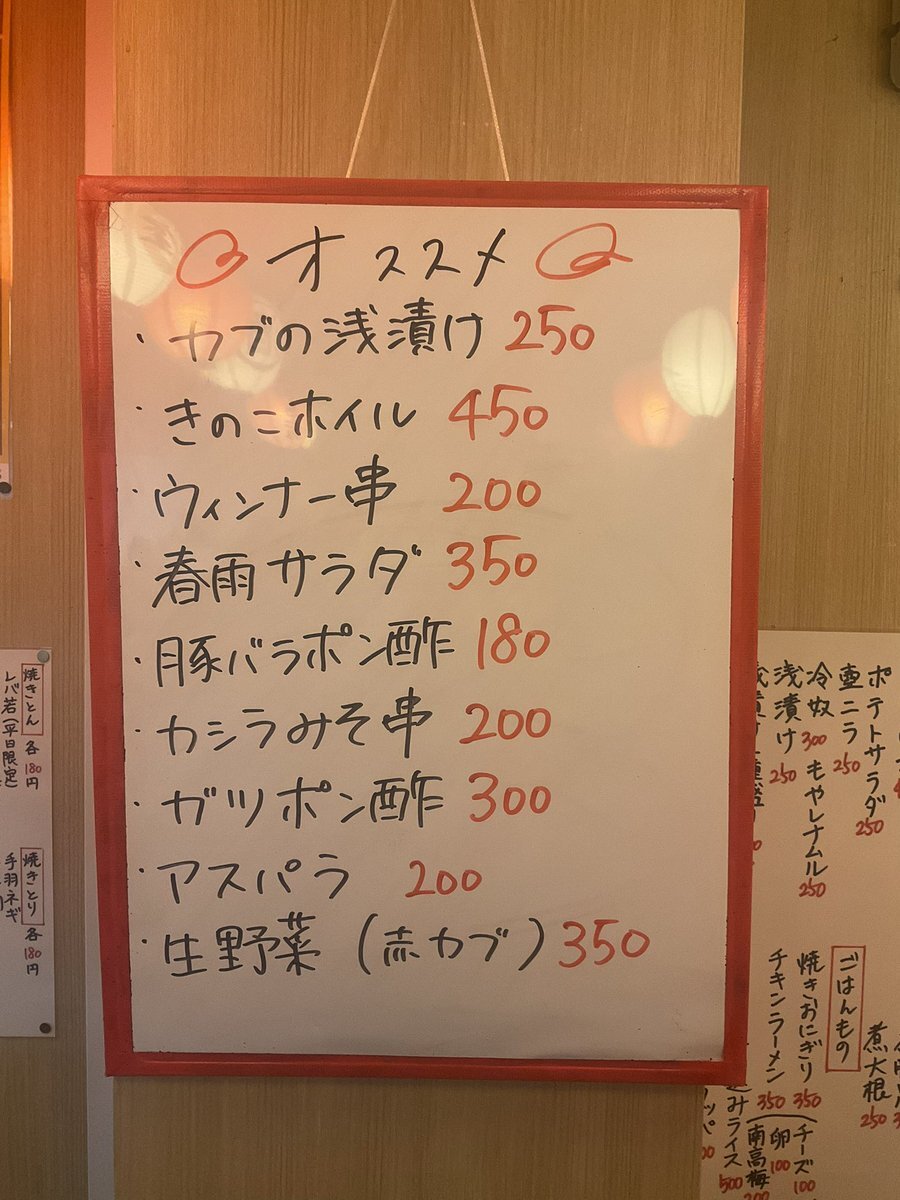 オススメ
・カブの浅漬け 250
・きのこホイル 450
・ウィンナー串 200
・春雨サラダ 350
・豚バラポン酢 180
・カシラみそ串 200
・ガツポン酢 300
・アスパラ 200
・生野菜（赤カブ）350
焼きとん 各180円
レバ若(平日限定)
焼きとり 各180円
手羽ネギ
ポテトサラダ 250
壺ニラ 250
冷奴 300 もやしナムル 250
浅漬け 250
煮大根 250
ごはんもの
焼きおにぎり 350
チキンラーメン 350
チーズ 100
卵 100
南高梅 200
みライス 500